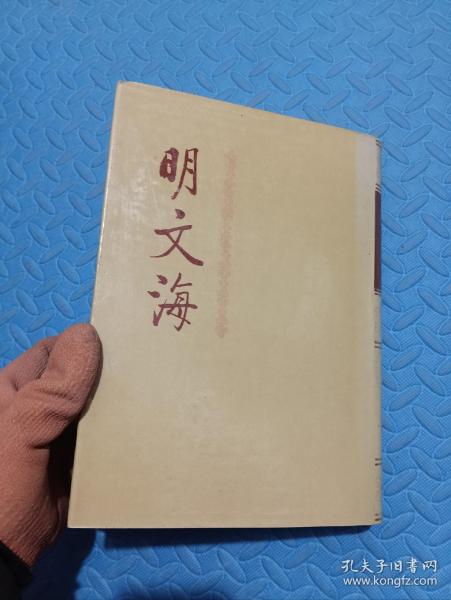 明文海
孔夫子旧书网
www.kongfz.com